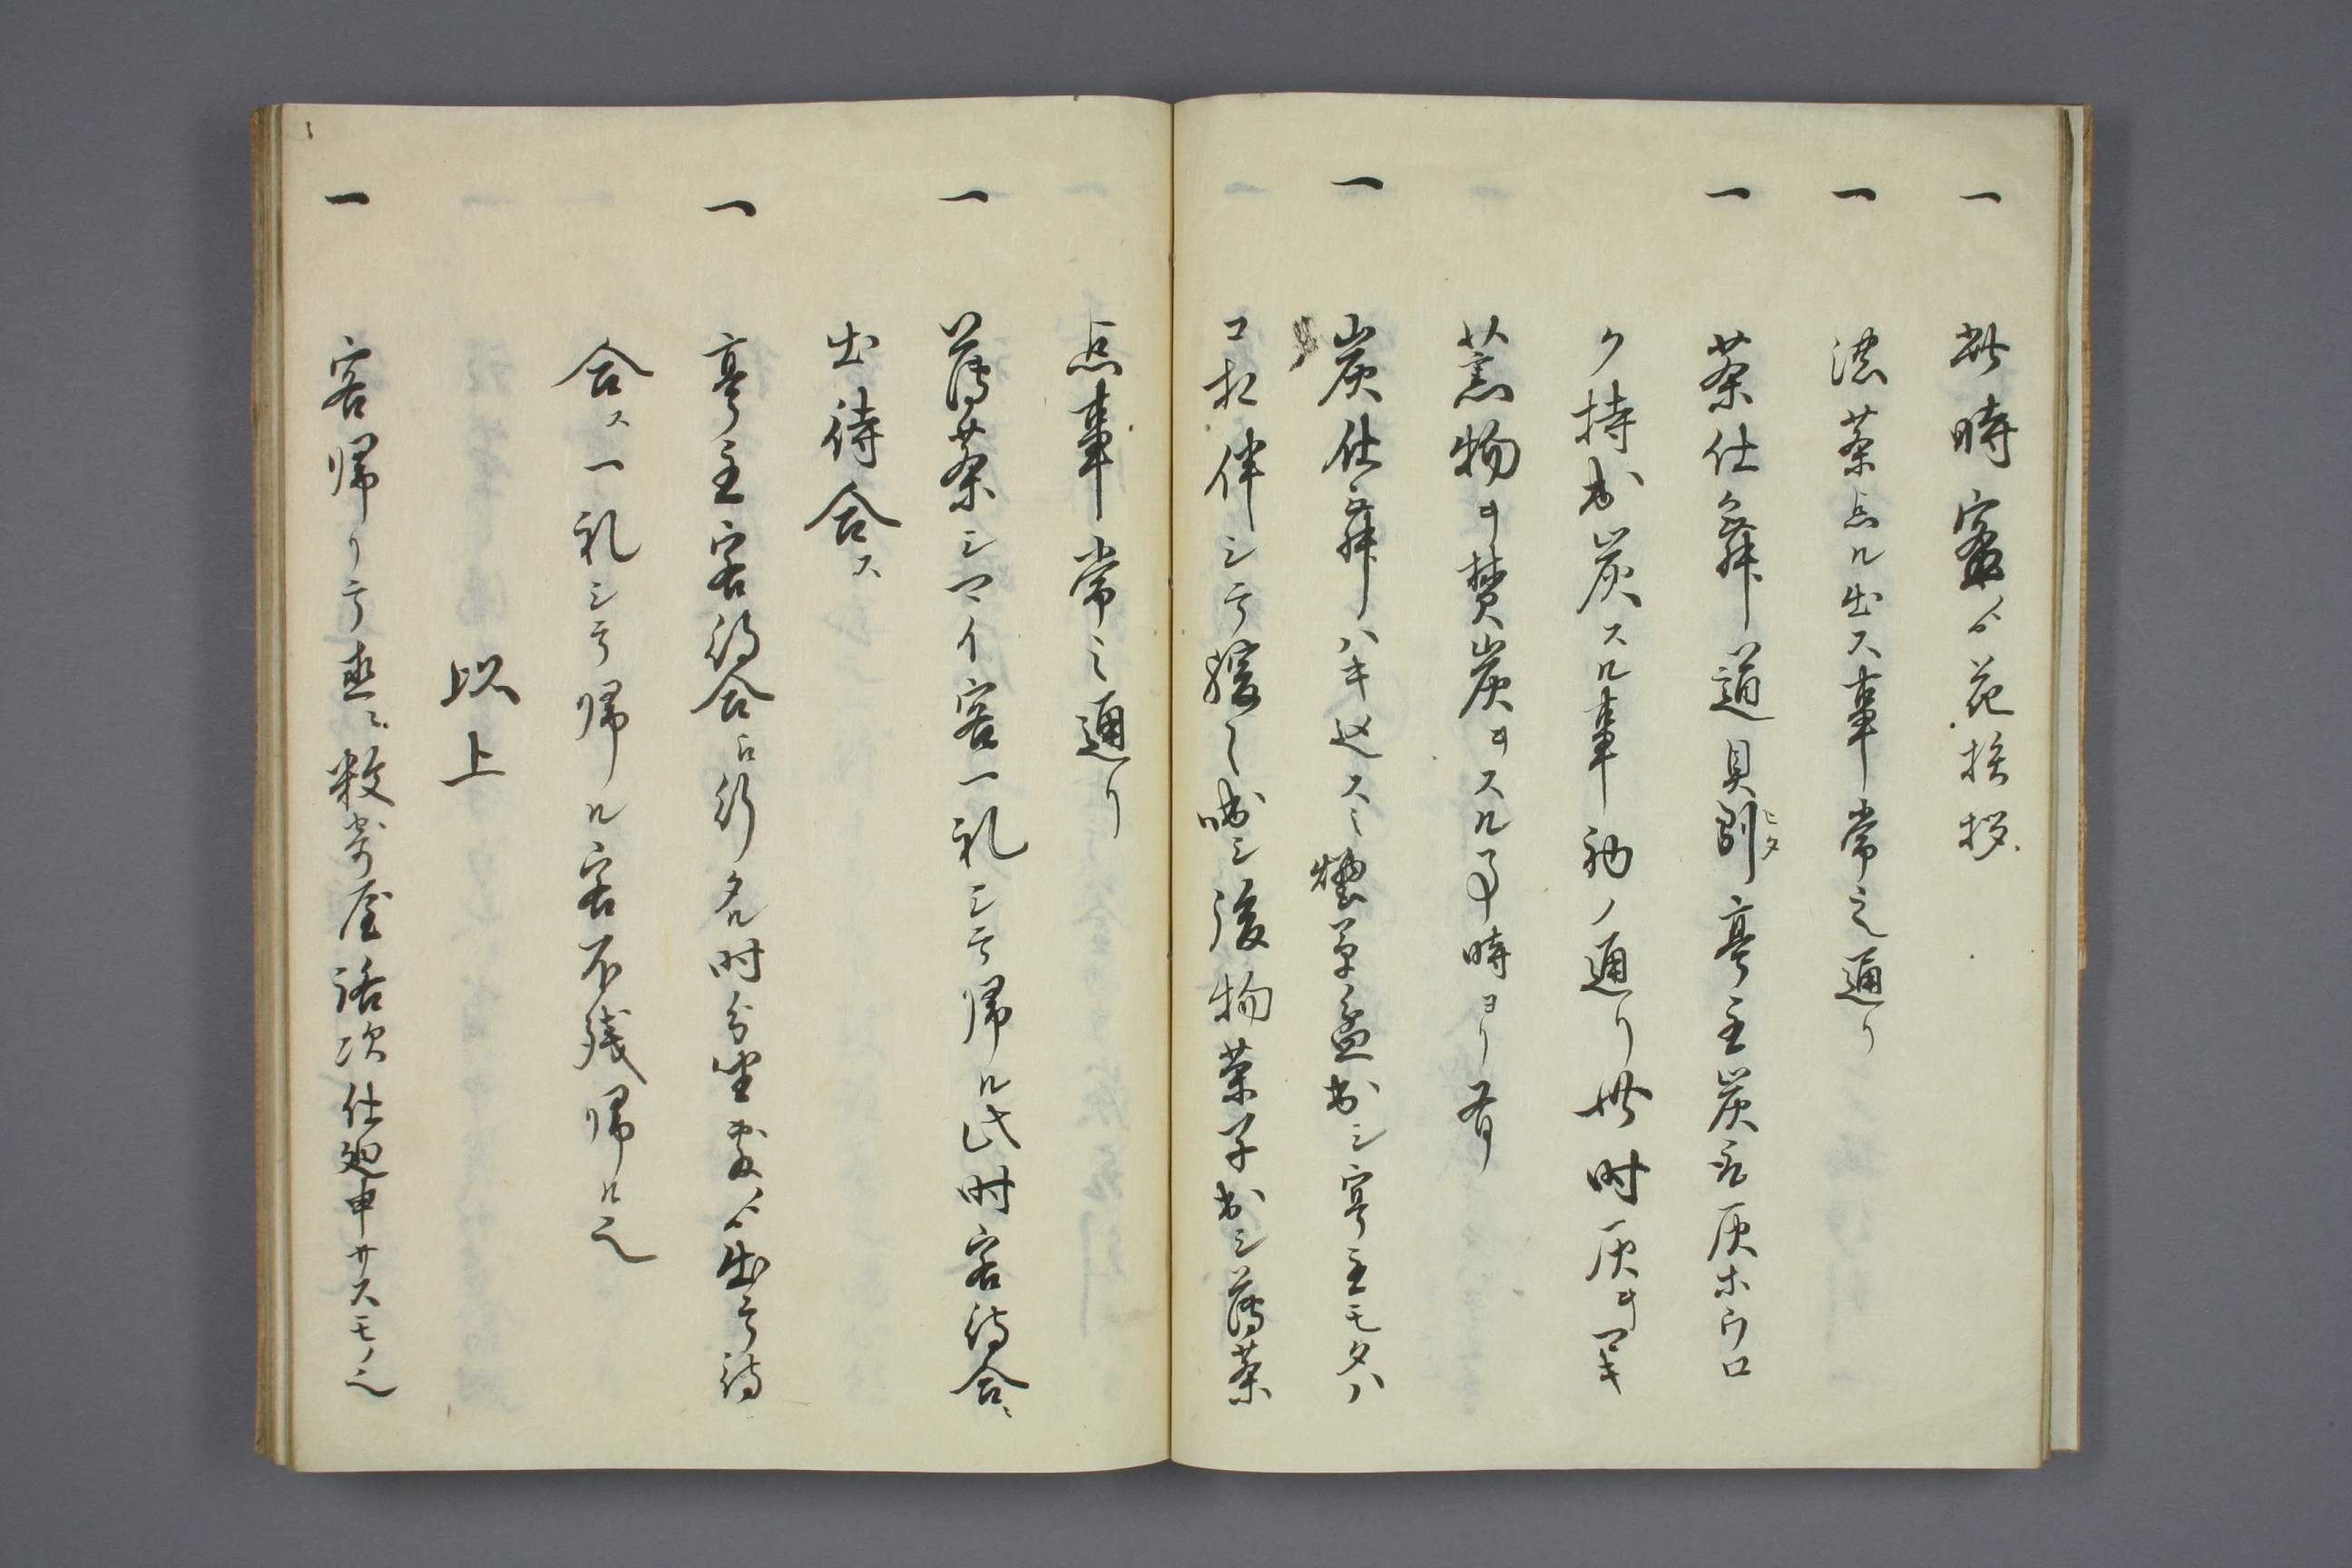 一 此時客ヨリ花挨拶
一 濃茶点ル出ス事常之通リ
一 茶仕舞道具引亭主炭取灰ホウロ
ク持出炭スル事初ノ通リ此時灰ヲマキ
薫物ヲ焚炭ヲスル事時ヨリ有
一 炭仕舞ハキ込スミ烟草盆出シ亭主モタハ
コ相伴シテ緩々咄シ後物菓子出シ薄茶
点事常之通リ
一 薄茶シマイ客一礼シテ帰ル此時客待合ニ
出待合ス
一 亭主客待合ニ行タル時分坐敷ヨリ出テ待
合ス一礼シテ帰ル客不残帰ル也
以上
一 客帰リテ直ニ数寄屋路次仕廻申サスモノ也